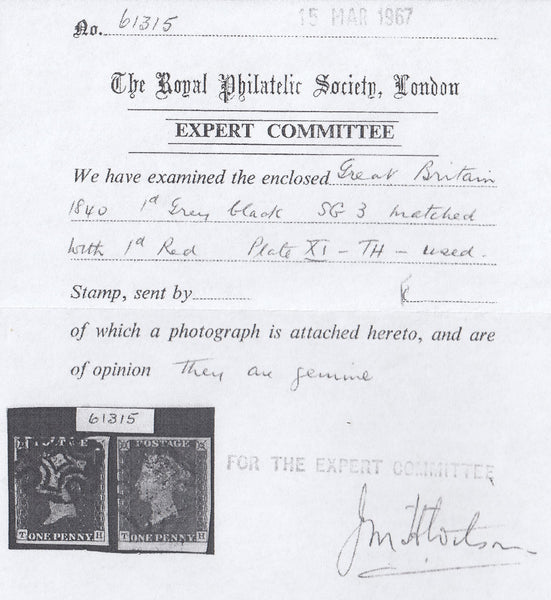 No. 61315
15 MAR 1967
The Royal Philatelic Society, London
EXPERT COMMITTEE
We have examined the enclosed Great Britain
1840 1d Grey black SG 3 matched
with 1d Red Plate XI - TH - used.
Stamp, sent by
of which a photograph is attached hereto, and are
of opinion They are genuine
61315
POSTAGE POSTAGE
T ONE PENNY H T ONE PENNY H
FOR THE EXPERT COMMITTEE